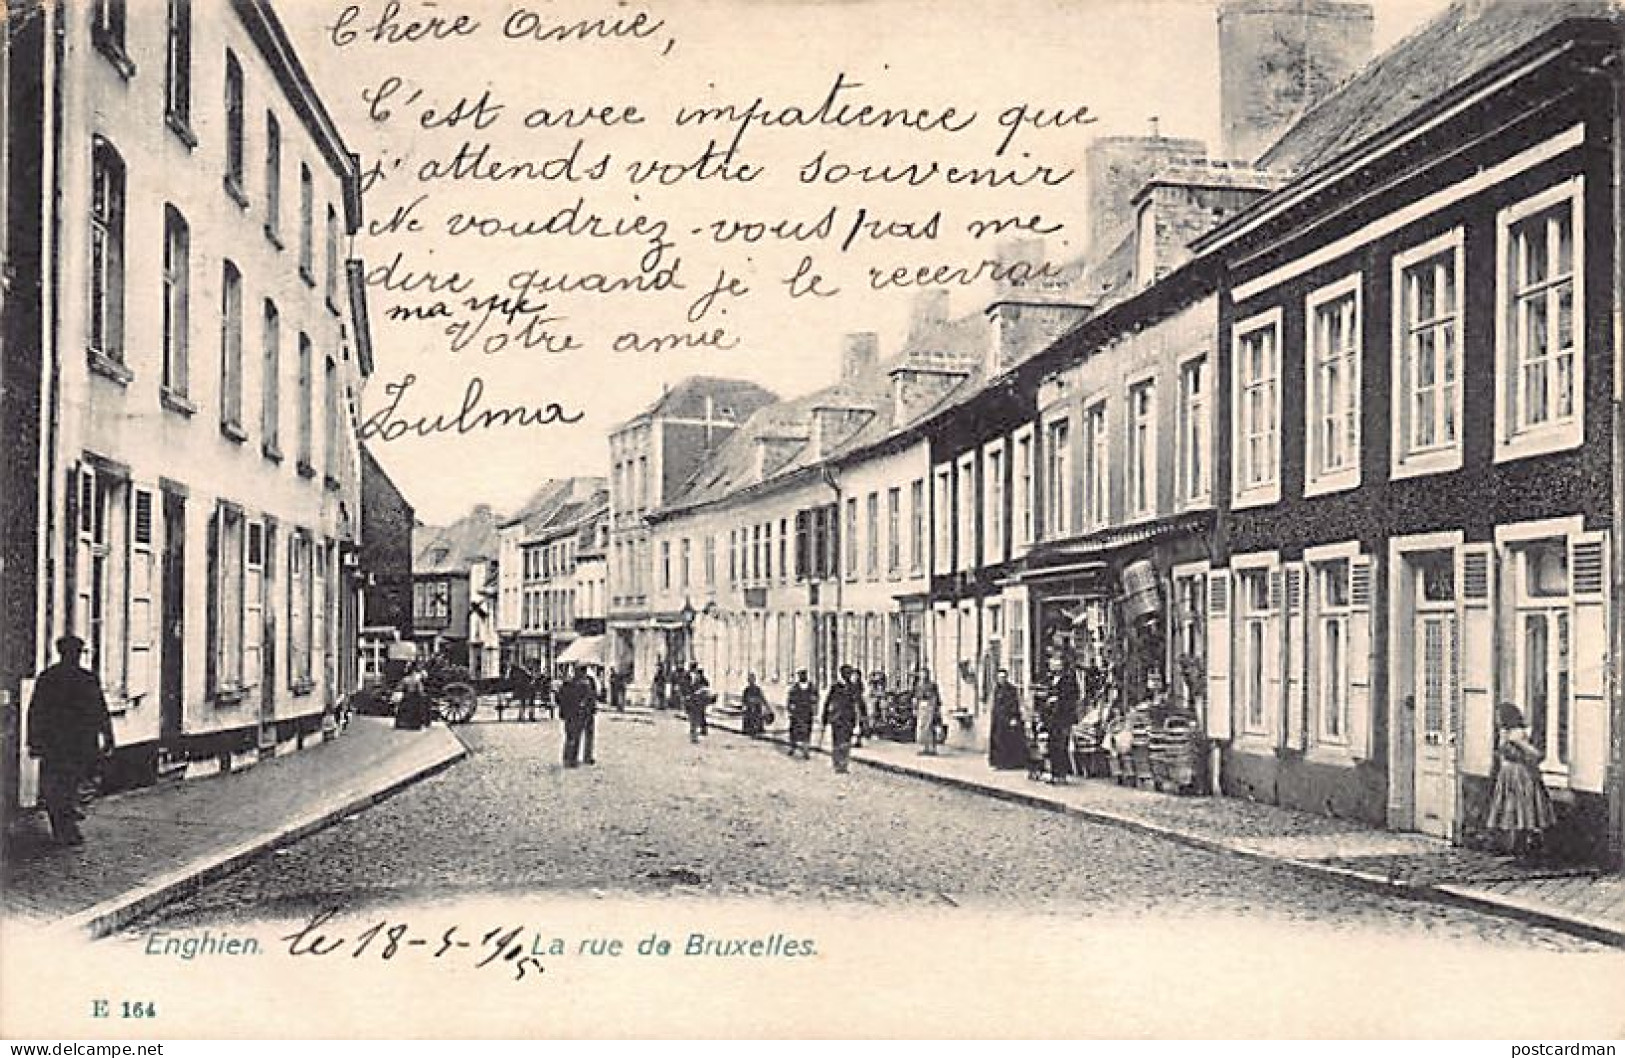 Chère Amie,
C'est avec impatience que
j'attends votre souvenir
Ne voudriez-vous pas me
dire quand je le recevrai
ma vue
Votre amie
Zulma
Enghien. le 18-5-1905 La rue de Bruxelles.
E 164
delcampe.net
postcardman